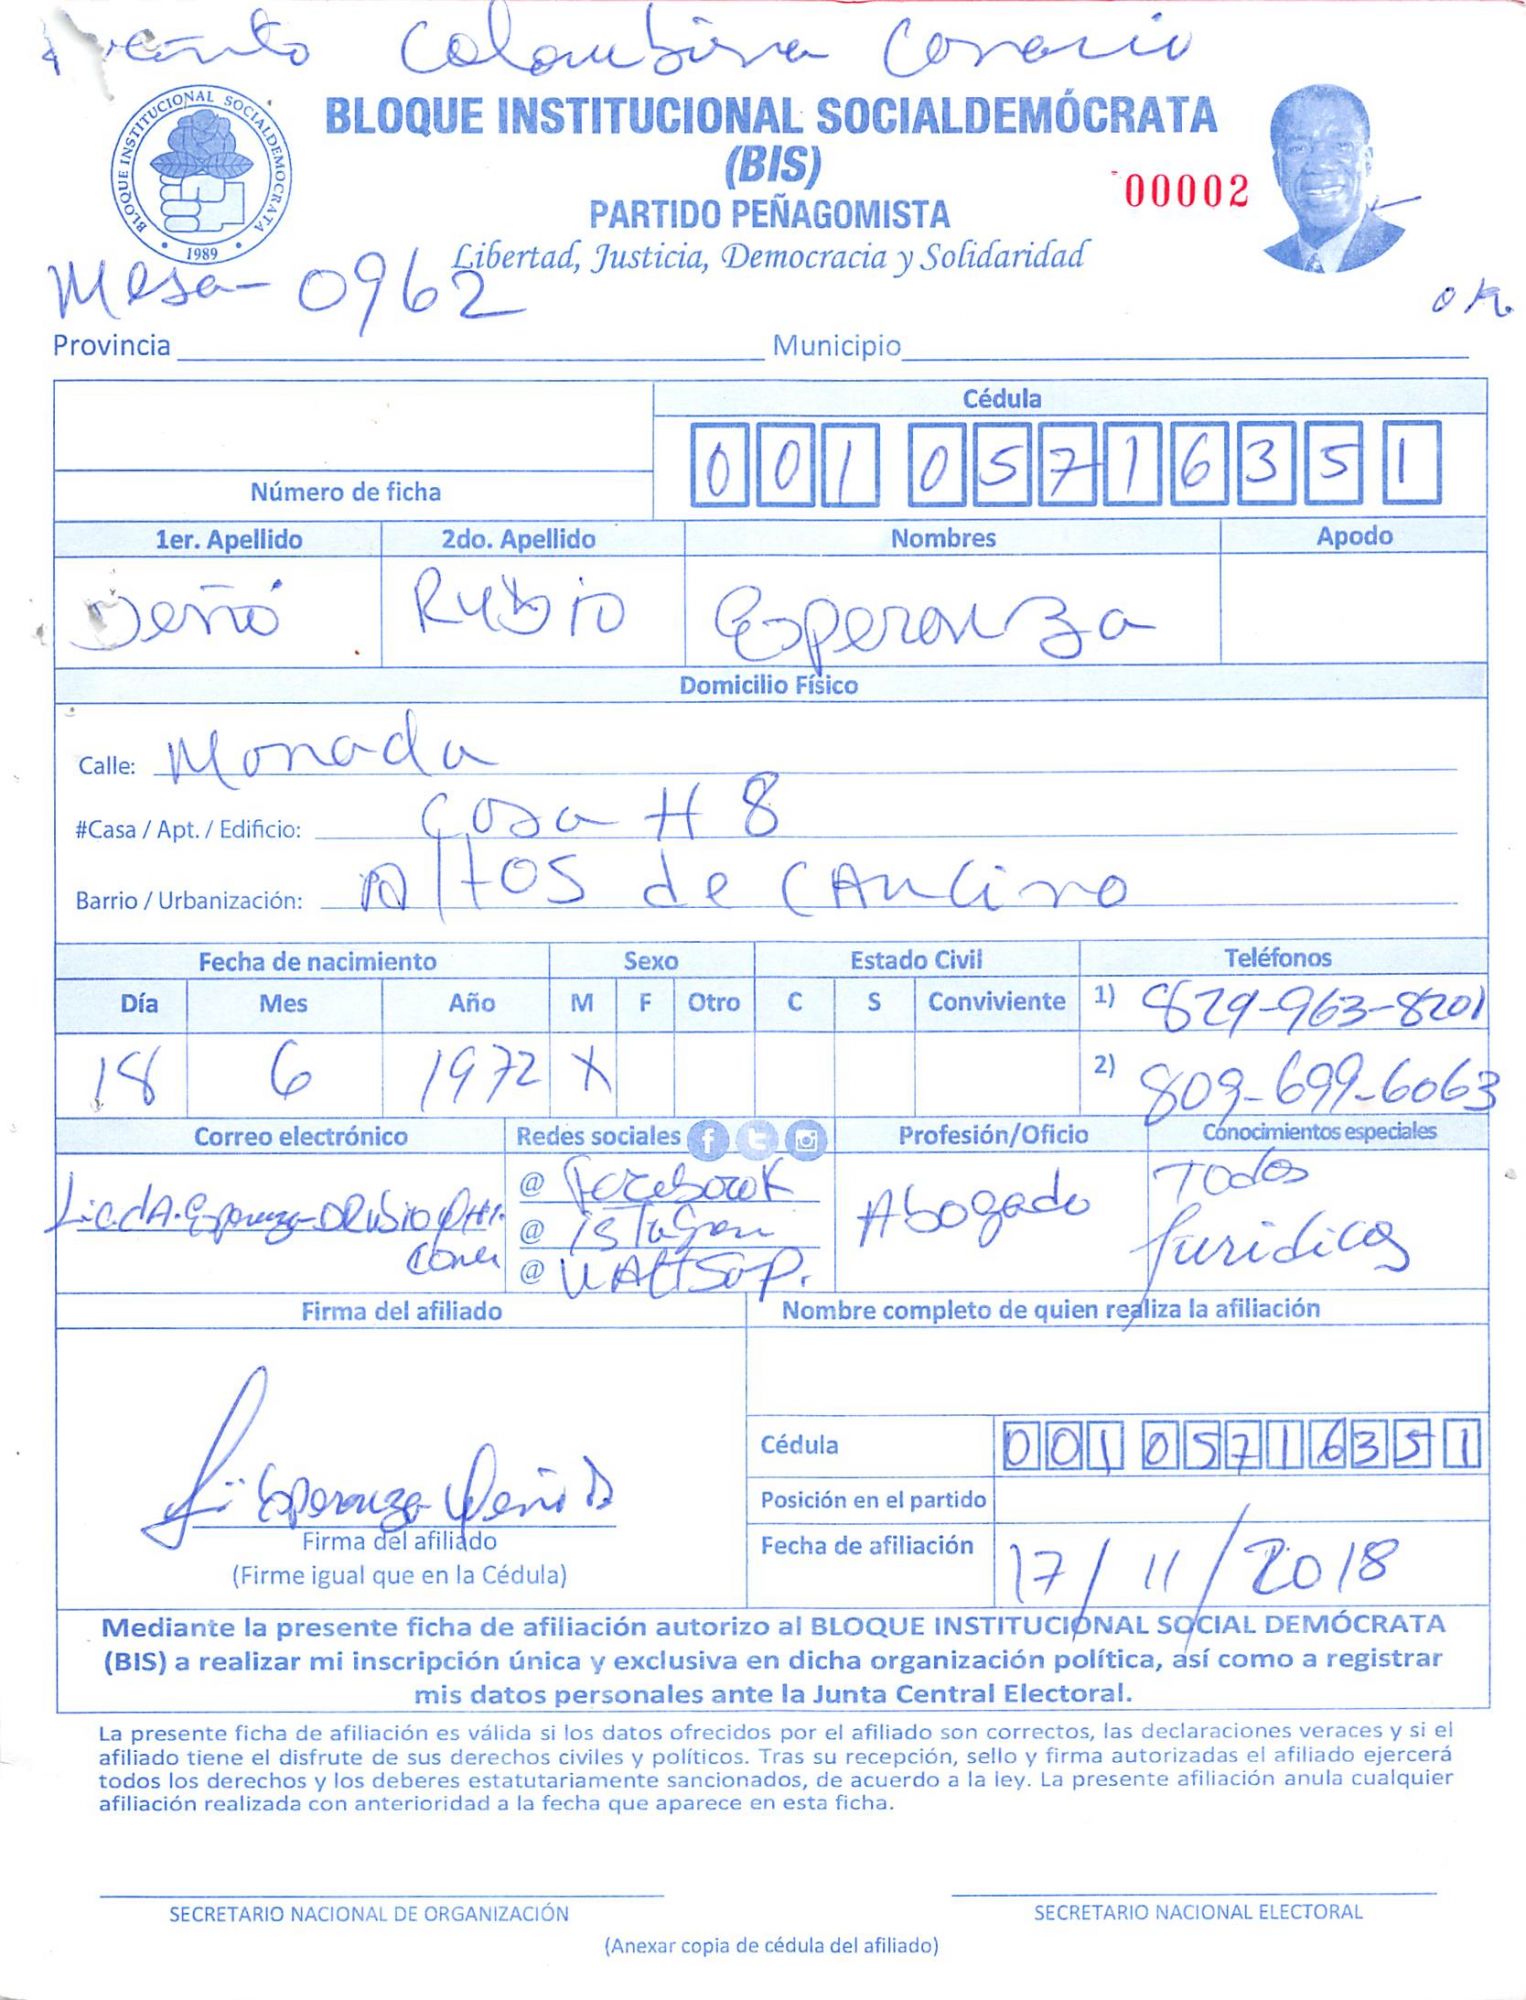 Colombina Conario
BLOQUE INSTITUCIONAL SOCIALDEMOCRATA
1989
BLOQUE INSTITUCIONAL SOCIALDEMÓCRATA
(BIS)
00002
PARTIDO PEÑAGOMISTA
Libertad, Justicia, Democracia y Solidaridad
Mesa- 0962
OK.
Provincia Municipio
Cédula
001 0571635 1
Número de ficha
1er. Apellido 2do. Apellido Nombres Apodo
Deñó Rubio Esperanza
Domicilio Físico
Calle: Monada
#Casa / Apt. / Edificio: Cosa H 8
Barrio / Urbanización: Altos de CAnCino
Fecha de nacimiento Sexo Estado Civil Teléfonos
Día Mes Año M F Otro C S Conviviente 1) 829-963-8201
18 6 1972 X 2) 809-699-6063
Correo electrónico Redes sociales Profesión/Oficio Conocimientos especiales
@ Facebook
@ isTagran
@ WAttSap.
Abogado
Todos
Juridicos
Firma del afiliado Nombre completo de quien realiza la afiliación
Esperanza
Firma del afiliado
(Firme igual que en la Cédula)
Cédula 001 0571635 1
Posición en el partido
Fecha de afiliación 17/11/2018
Mediante la presente ficha de afiliación autorizo al BLOQUE INSTITUCIONAL SOCIAL DEMÓCRATA
(BIS) a realizar mi inscripción única y exclusiva en dicha organización política, así como a registrar
mis datos personales ante la Junta Central Electoral.
La presente ficha de afiliación es válida si los datos ofrecidos por el afiliado son correctos, las declaraciones veraces y si el
afiliado tiene el disfrute de sus derechos civiles y políticos. Tras su recepción, sello y firma autorizadas el afiliado ejercerá
todos los derechos y los deberes estatutariamente sancionados, de acuerdo a la ley. La presente afiliación anula cualquier
afiliación realizada con anterioridad a la fecha que aparece en esta ficha.
SECRETARIO NACIONAL DE ORGANIZACIÓN SECRETARIO NACIONAL ELECTORAL
(Anexar copia de cédula del afiliado)